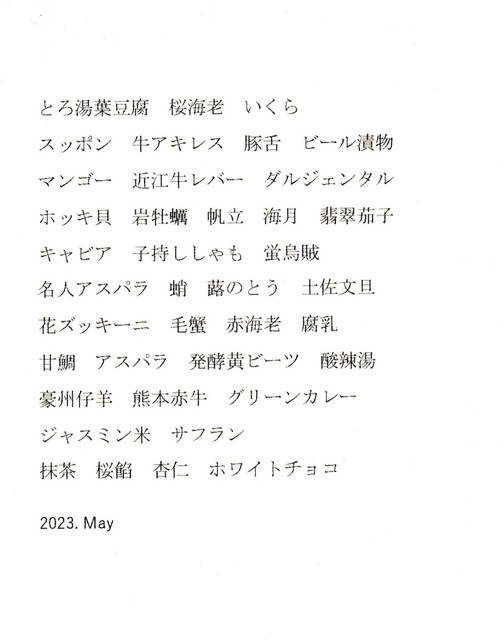 とろ湯葉豆腐　桜海老　いくら
スッポン　牛アキレス　豚舌　ビール漬物
マンゴー　近江牛レバー　ダルジェンタル
ホッキ貝　岩牡蠣　帆立　海月　翡翠茄子
キャビア　子持ししゃも　蛍烏賊
名人アスパラ　蛸　蕗のとう　土佐文旦
花ズッキーニ　毛蟹　赤海老　腐乳
甘鯛　アスパラ　発酵黄ビーツ　酸辣湯
豪州仔羊　熊本赤牛　グリーンカレー
ジャスミン米　サフラン
抹茶　桜餡　杏仁　ホワイトチョコ
2023. May